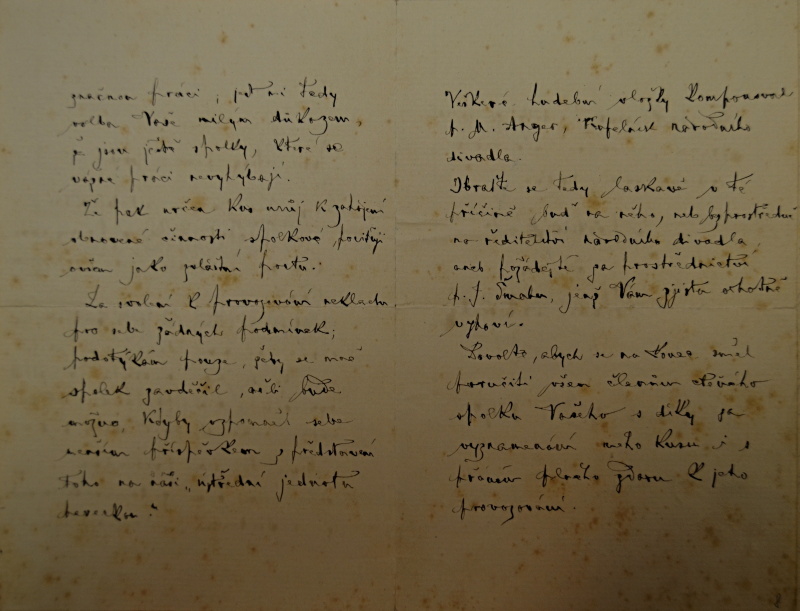 značnou práci, jest mi tedy
volba Vaše milým důkazem,
že jsou ještě spolky, které se
vážné práci nevyhýbají.
Že pak určen kus můj k zahájení
obnovené činnosti spolkové, považuji
ovšem jako zvláštní poctu.
Za svolení k provozování nekladu
pro sebe žádných podmínek;
podotýkám pouze, žeby se mně
spolek zavděčil, ač-li bude
možno, kdyby vzpomněl sebe
menším příspěvkem z představení
toho na naši „ústřední jednotu
hereckou".
Veškeré hudební vložky komponoval
p. M. Anger, kapelník národního
divadla.
Obraťte se tedy laskavě v té
příčině buď na něho, neb bezprostředně
na ředitelství národního divadla
aneb požádejte za prostřednictví
p. J. Šmahu, jenž Vám zjista ochotně
vyhoví.
Dovolte, abych se na konec směl
poručiti všem členům ctěného
spolku Vašeho s díky za
vyznamenání mého kusu i s
přáním plného zdaru k jeho
provozování.